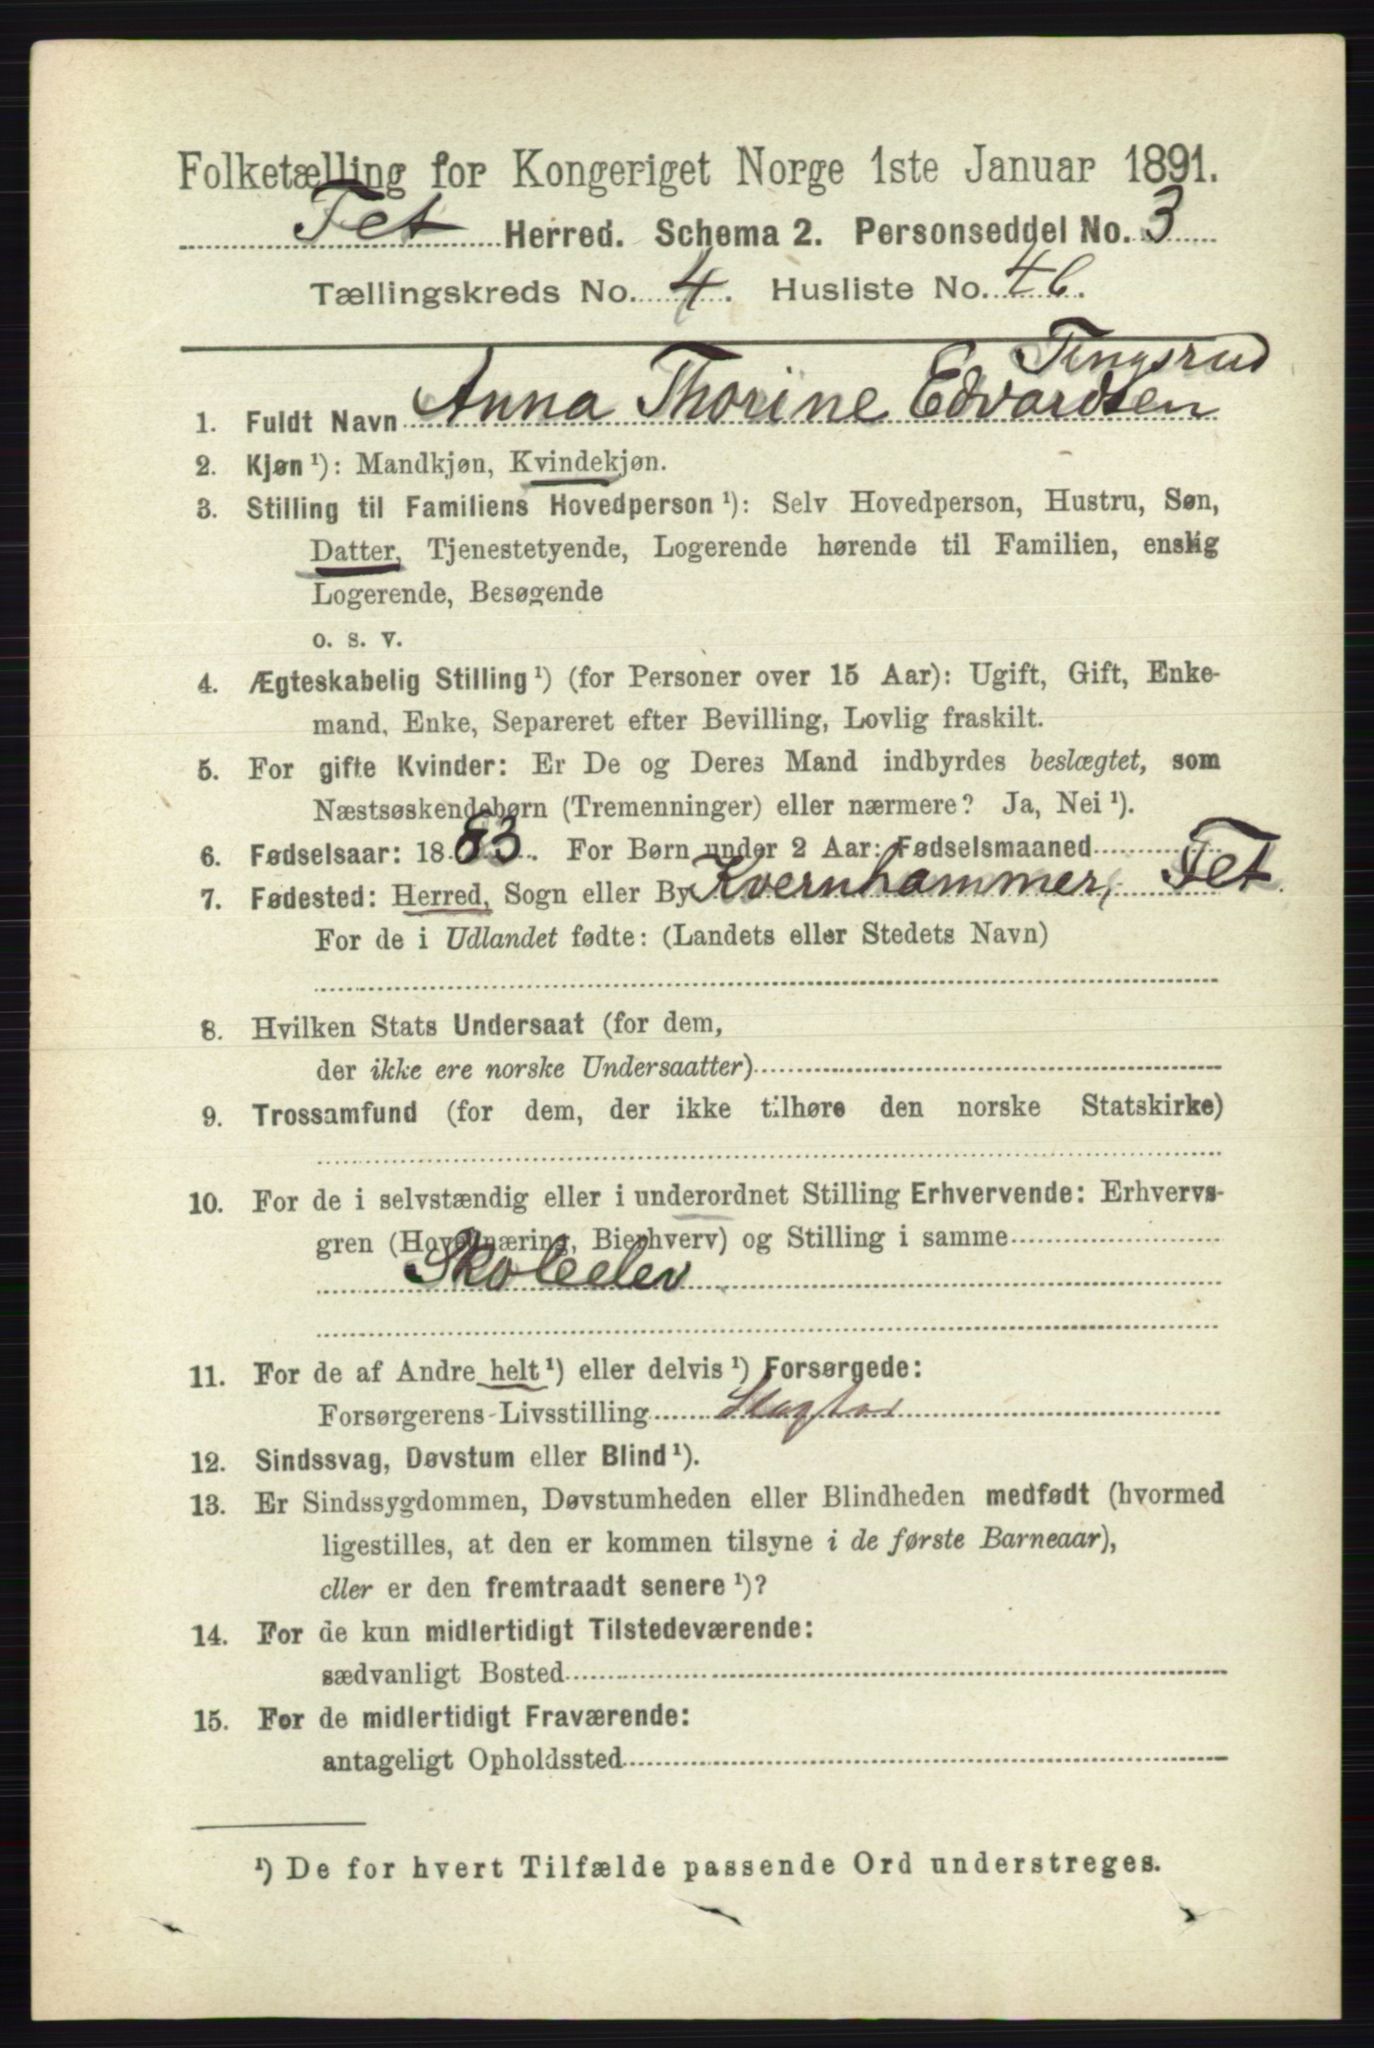 Folketælling for Kongeriget Norge 1ste Januar 1891.
Fet Herred. Schema 2. Personseddel No. 3
Tællingskreds No. 4. Husliste No. 46.
Tingsrud
1. Fuldt Navn Anna Thorine Edvardsen
2. Kjøn ¹): Mandkjøn, Kvindekjøn.
3. Stilling til Familiens Hovedperson ¹): Selv Hovedperson, Hustru, Søn,
Datter, Tjenestetyende, Logerende hørende til Familien, enslig
Logerende, Besøgende
o. s. v.
4. Ægteskabelig Stilling ¹) (for Personer over 15 Aar): Ugift, Gift, Enke-
mand, Enke, Separeret efter Bevilling, Lovlig fraskilt.
5. For gifte Kvinder: Er De og Deres Mand indbyrdes beslægtet, som
Næstsøskendebørn (Tremenninger) eller nærmere? Ja, Nei ¹).
6. Fødselsaar: 1883. For Børn under 2 Aar: Fødselsmaaned
7. Fødested: Herred, Sogn eller By Kvernhammer, Fet
For de i Udlandet fødte: (Landets eller Stedets Navn)
8. Hvilken Stats Undersaat (for dem,
der ikke ere norske Undersaatter)
9. Trossamfund (for dem, der ikke tilhøre den norske Statskirke)
10. For de i selvstændig eller i underordnet Stilling Erhvervende: Erhvervs-
gren (Hovednæring, Bierhverv) og Stilling i samme
Skoleelev
11. For de af Andre helt ¹) eller delvis ¹) Forsørgede:
Forsørgerens Livsstilling Slagter
12. Sindssvag, Døvstum eller Blind ¹).
13. Er Sindssygdommen, Døvstumheden eller Blindheden medfødt (hvormed
ligestilles, at den er kommen tilsyne i de første Barneaar),
eller er den fremtraadt senere ¹)?
14. For de kun midlertidigt Tilstedeværende:
sædvanligt Bosted
15. For de midlertidigt Fraværende:
antageligt Opholdssted
¹) De for hvert Tilfælde passende Ord understreges.